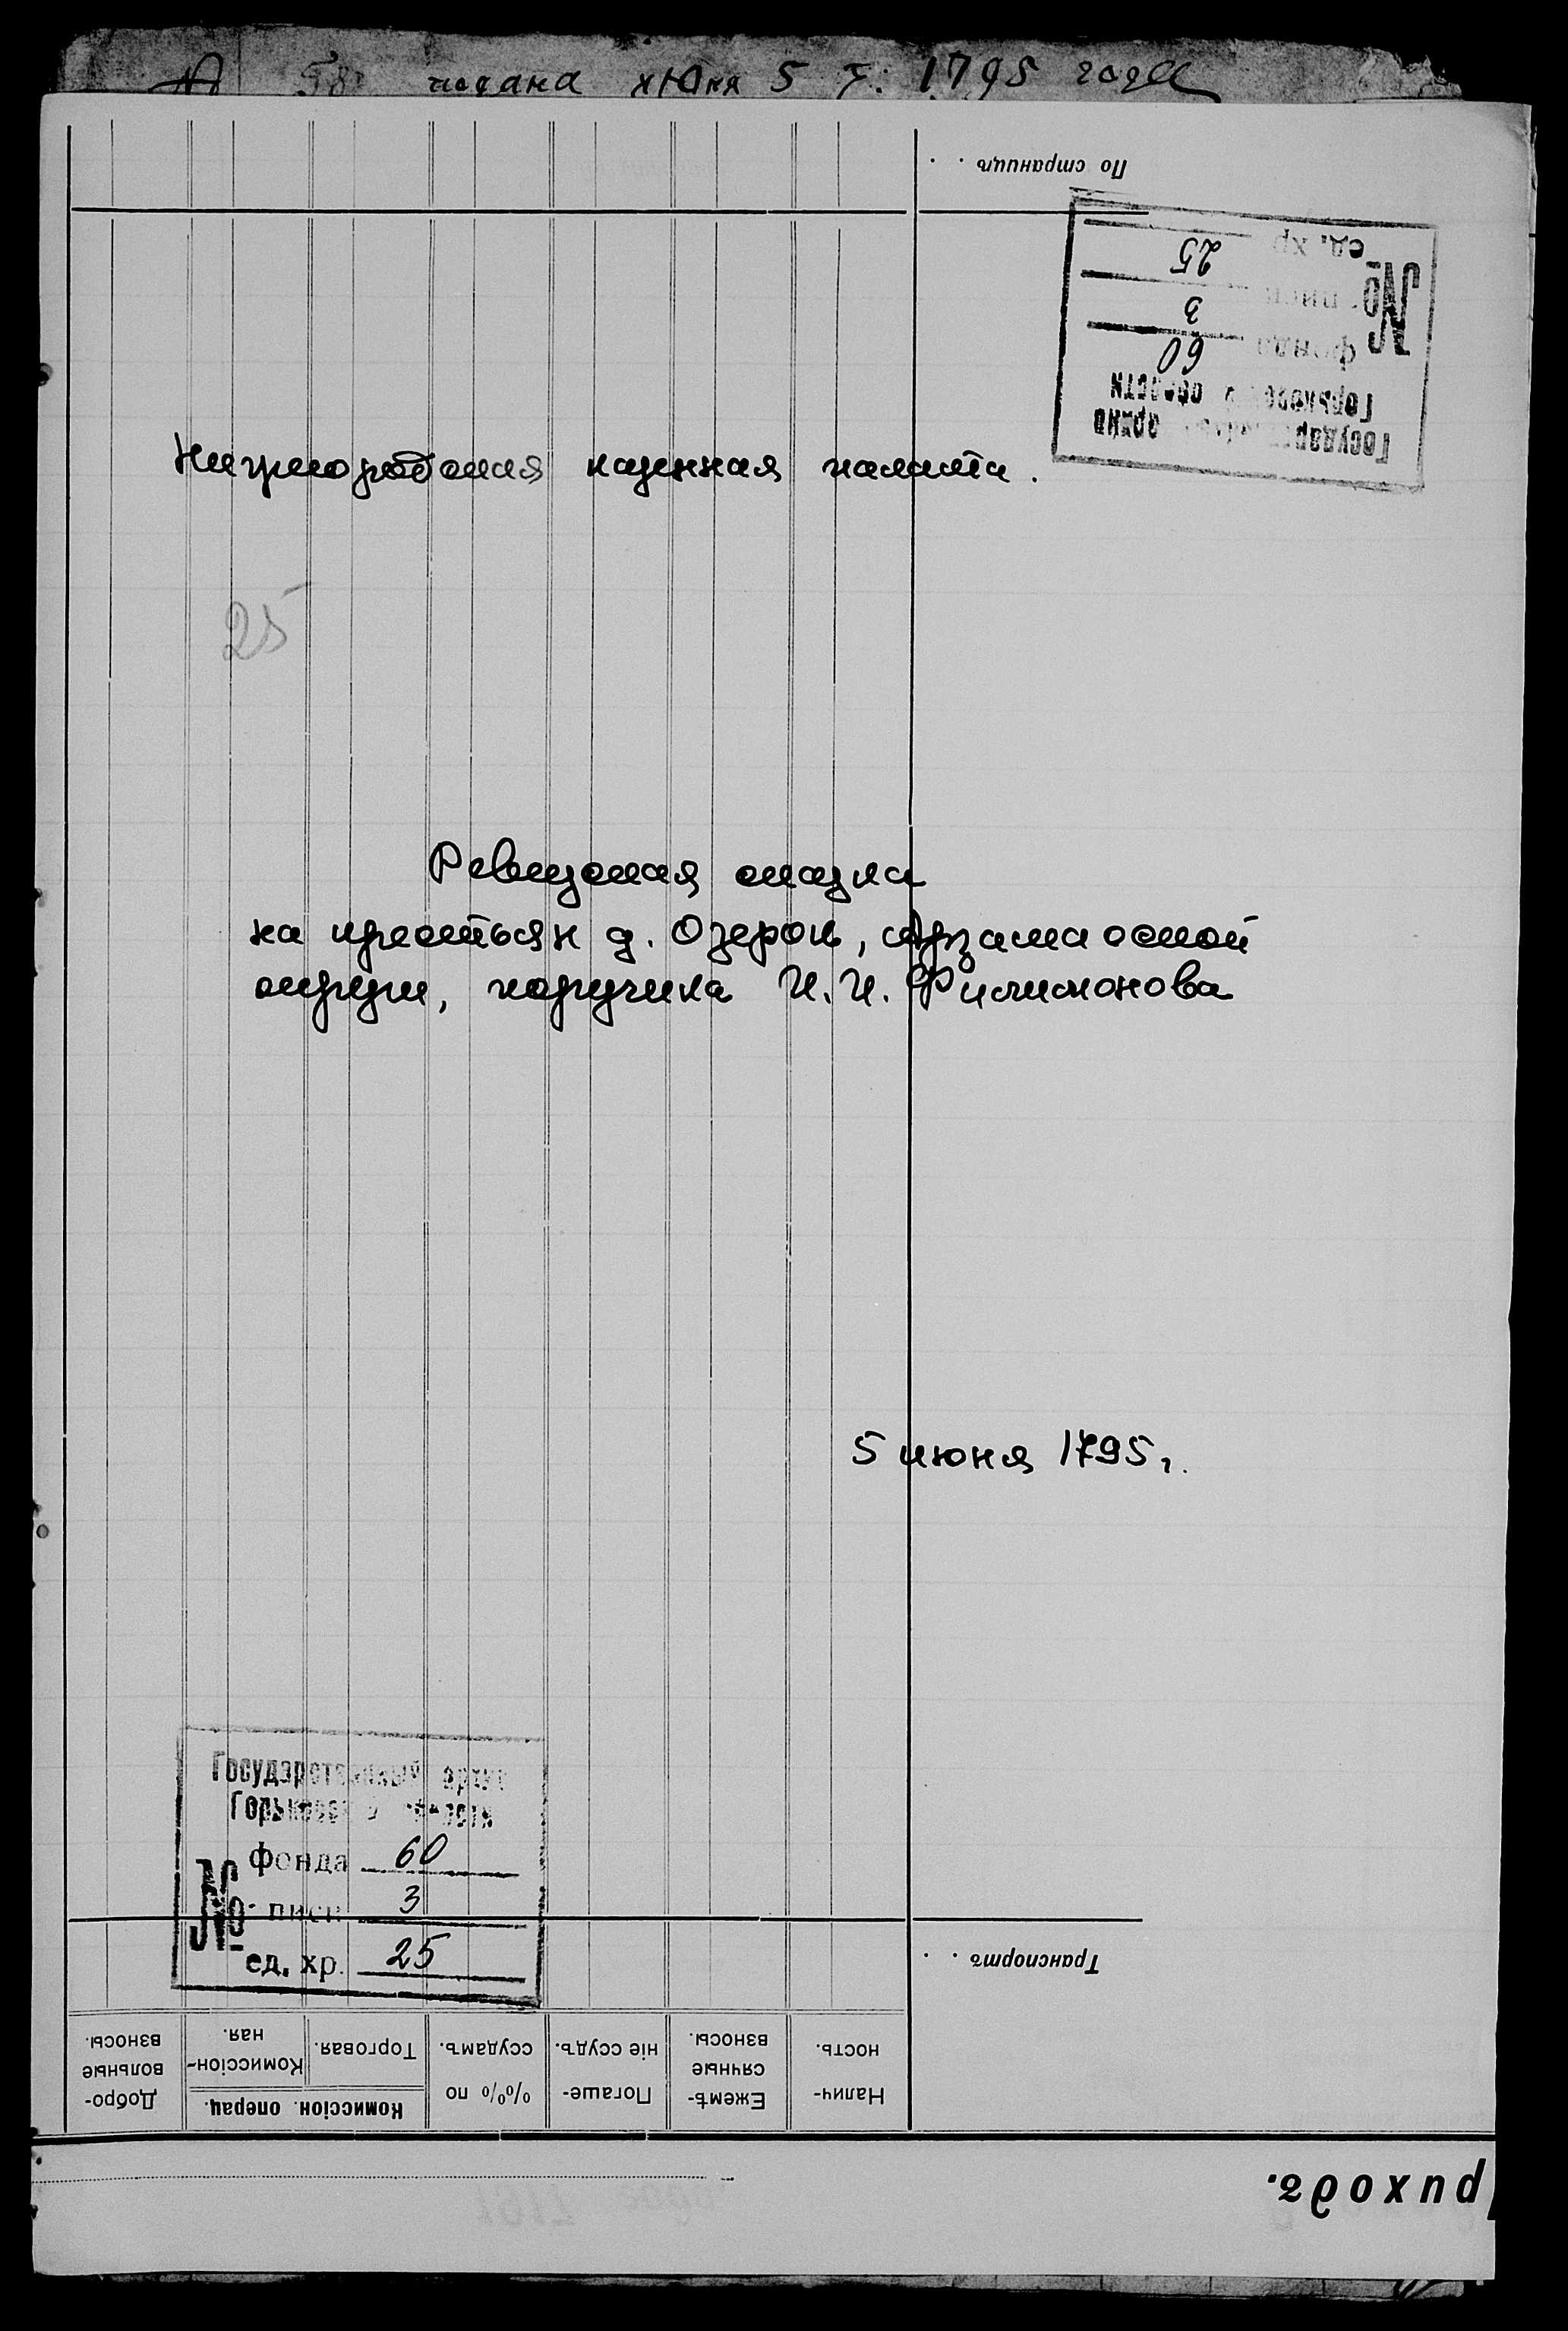 подана июня 5 г: 1795 года
По страницѣ . .
Государственный архив
Горьковской области
№
фонда 60
описи 3
ед. хр. 25
Нижегородская казенная палата.
25
Ревизская сказка
на крестьян д. Озерок, Арзамасской
округи, поручика И.И. Филимонова
5 июня 1795 г.
Государственный архив
Горьковской области
№
фонда 60
описи 3
ед. хр. 25
Транспортъ . .
Налич-
ность.
Ежемѣ-
сячные
взносы.
Погаше-
ніе ссудъ.
%% по
ссудамъ.
Комиссіон. операц.
Торговая.
Комиссіон-
ная.
Добро-
вольные
взносы.
риходъ.